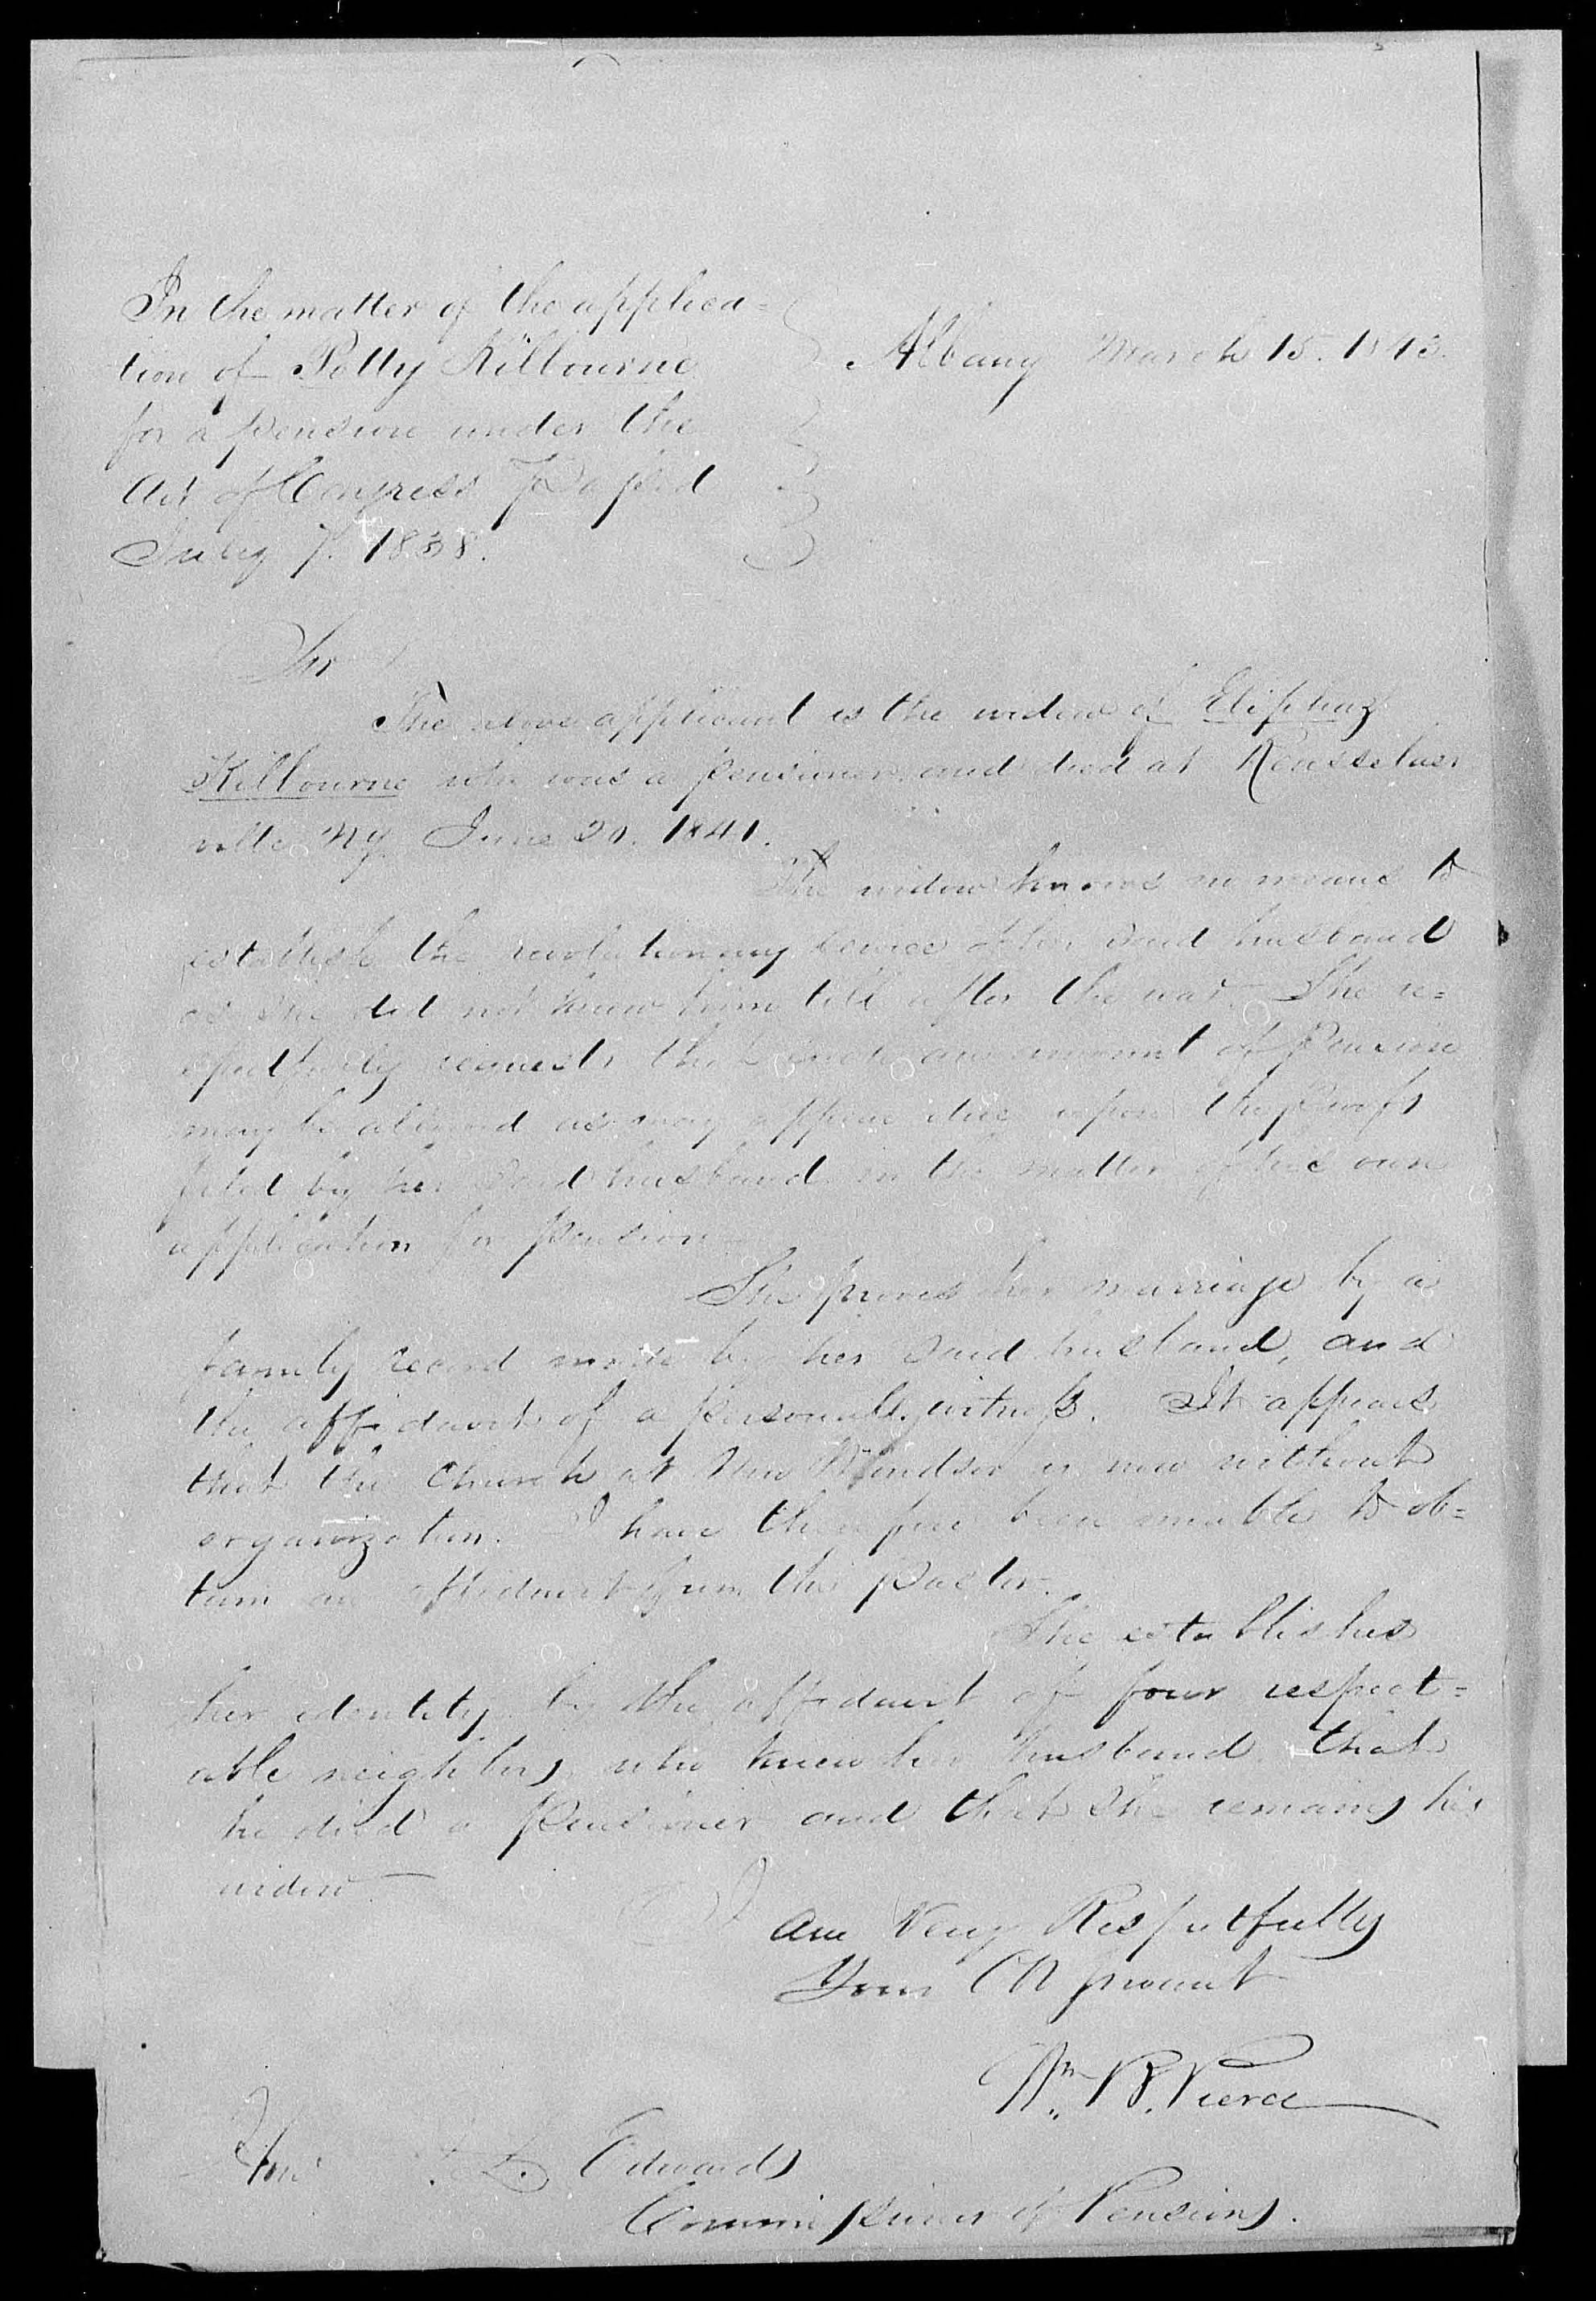 In the matter of the applica=
tion of Polly Kilbourne
for a pension under the
Act of Congress Passed
July 7. 1838.
Albany March 15. 1843.
Sir
The above applicant is the widow of Eliphaz
Kilbourne who was a pensioner and died at Rensselaer
ville NY June 20. 1841.
The widow knows no means to
establish the revolutionary service of her said husband
as she did not know him till after the war. She re=
spectfully requests that such an amount of Pension
may be allowed as may appear due upon the proofs
filed by her said husband in the matter of his own
application for pension
She proves her marriage by a
family record made by her said husband, and
the affidavit of a personal witness. It appears
that the Church at New Windsor is now without
organization. I have therefore been unable to ob=
tain an affidavit from the Pastor.
She establishes
her identity by the affidavit of four respect=
able neighbors who knew her husband that
he died a Pensioner and that she remains his
widow.
I am Very Respectfully
Your
Wm. B. Pierce
Hon J. L. Edwards
Commissioner of Pensions.